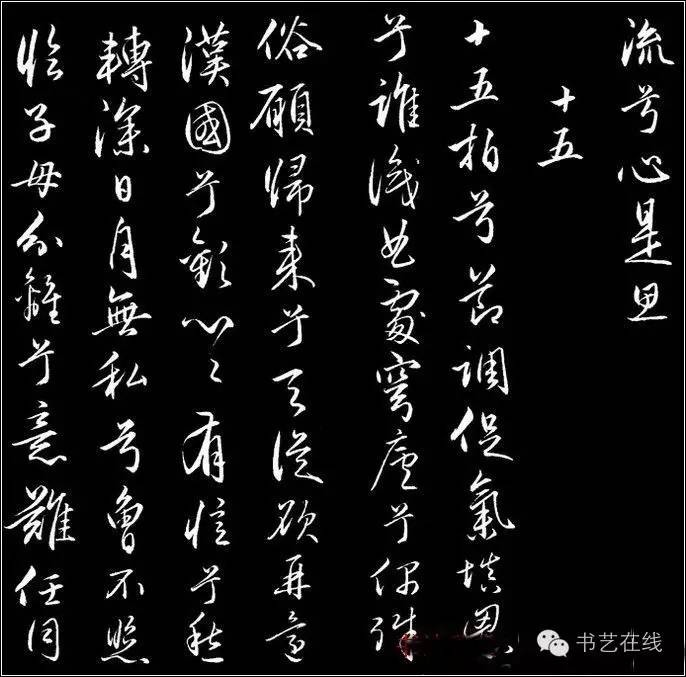 流兮心是思
十五
十五拍兮節調促氣填胸
兮誰識曲處穹廬兮偶殊
俗願歸來兮天從欲再還
漢國兮歡心〻有憶兮愁
轉深日月無私兮曾不照
臨子母分離兮意難任同
书艺在线